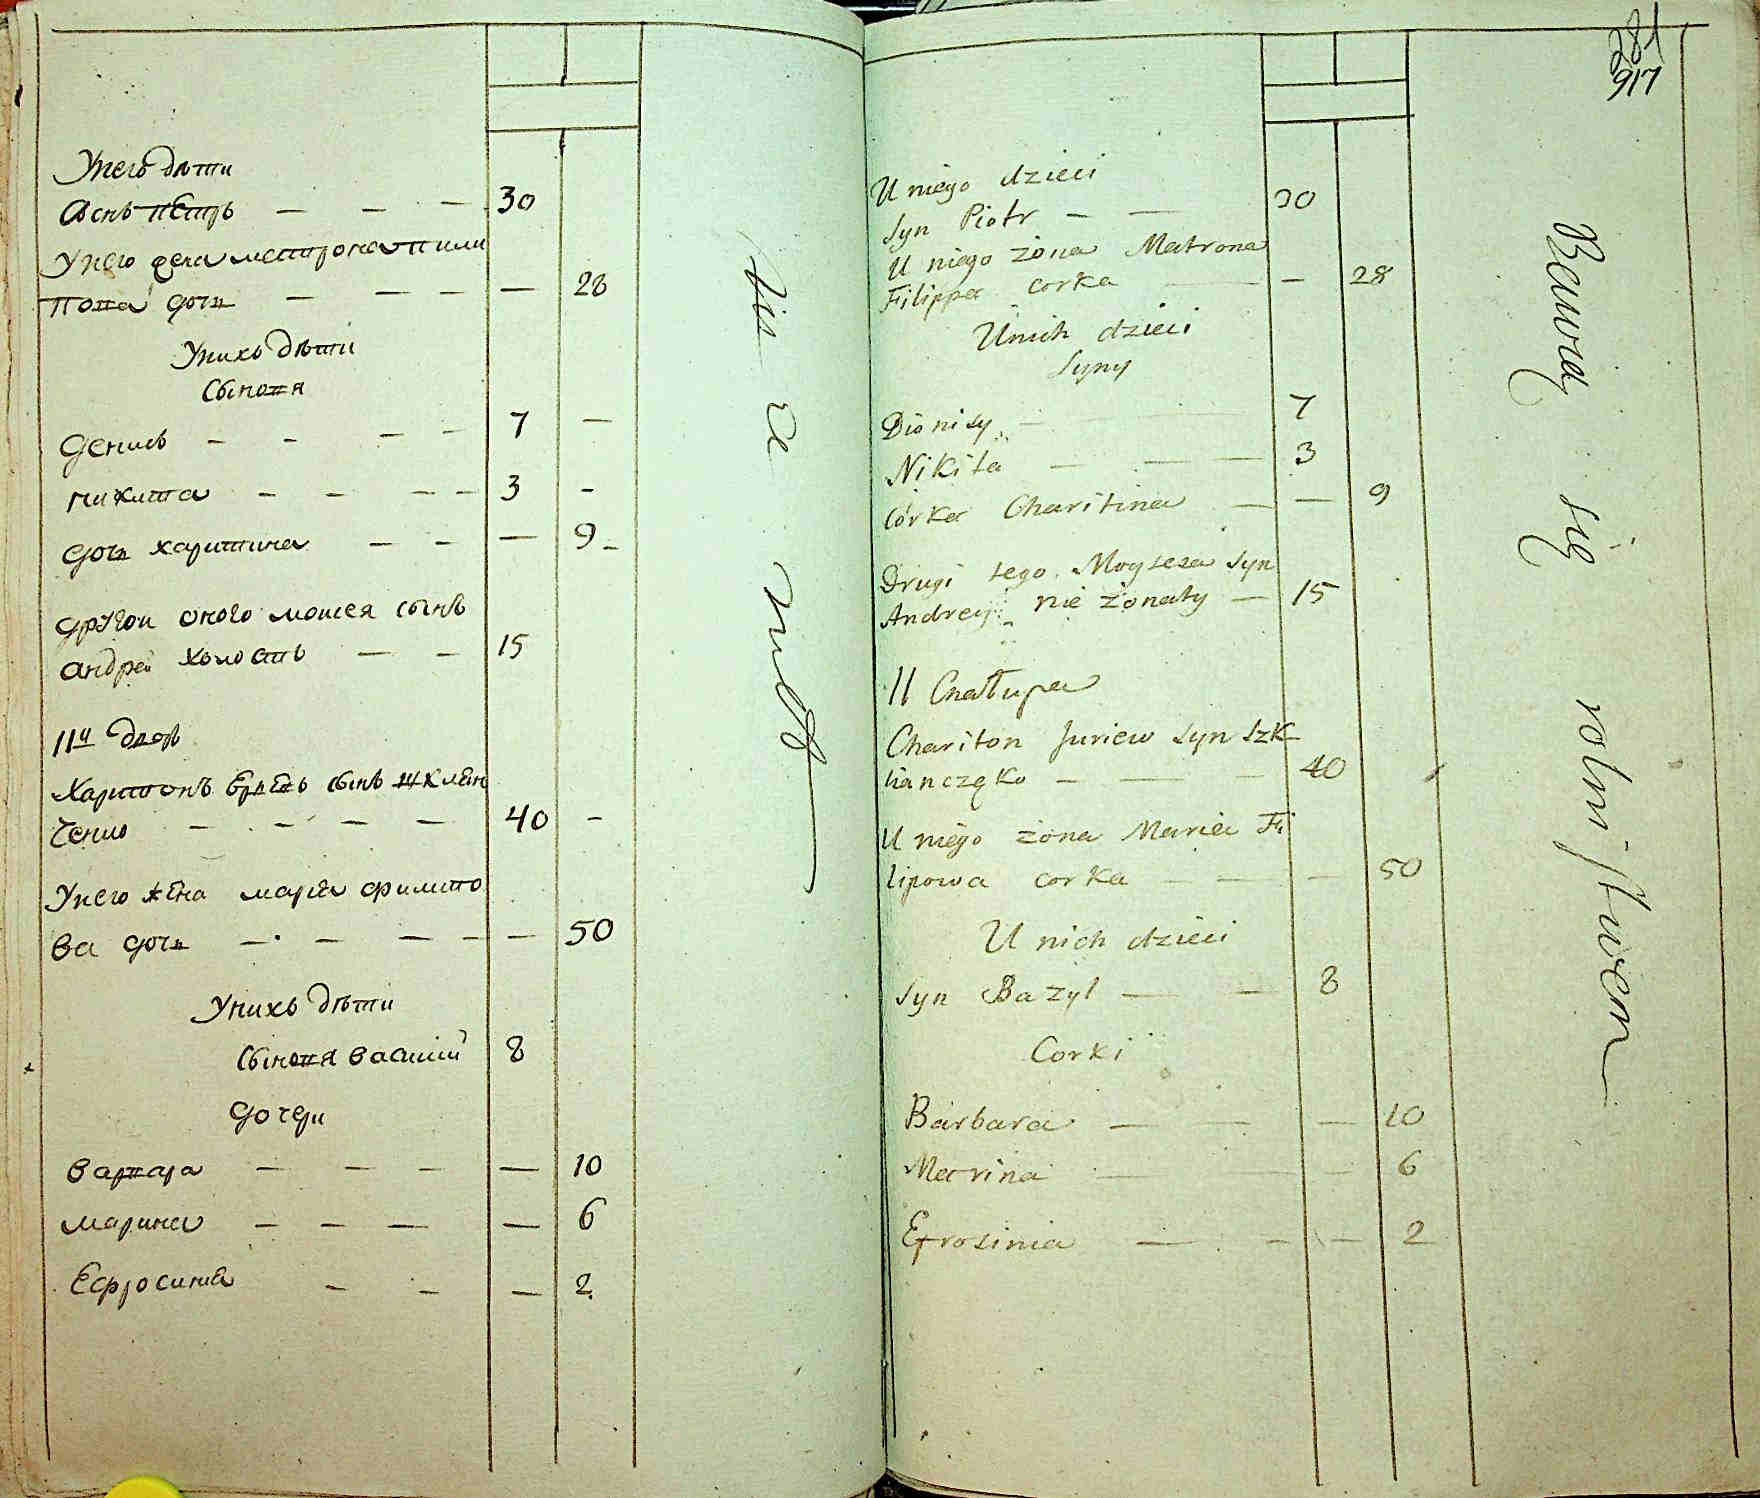 У него дѣти
сынъ петръ — — — 30
У него жена матрона фили
пова дочь — — — — 28
У нихъ дѣти
Сыновя
Денисъ — — — — 7 —
никита — — — — 3 —
дочь харитина — — — 9
другои оного моисея сынъ
андреи холостъ — — 15
11й Дворъ
Харитонъ Юрьевъ сынъ шклен
ченко — — — — 40 —
У него жена мария филипо
ва дочь — — — — — 50
У нихъ дѣти
Сыновя василий 8
дочери
варвара — — — — 10
марина — — — — 6
Ефросиния — — — 2
281
917
U niego dzieci
Syn Piotr — — 30
U niego żona Matrona
Filippa corka — — 28
U nich dzieci
Syny
Dionisy — 7
Nikita — — — 3
Córka Charitina — — 9
Drugi tego Moyseza Syn
Andrey nie żonaty — 15
11 Chałupa
Chariton Juriew Syn Szk
lanczęko — — — 40
U niego żona Maria Fi
lipowa corka — — — 50
U nich dzieci
Syn Bazyl — — 8
Corki
Barbara — — — 10
Marina — — 6
Efrosinia — — — 2
Bawią się rolnistwem